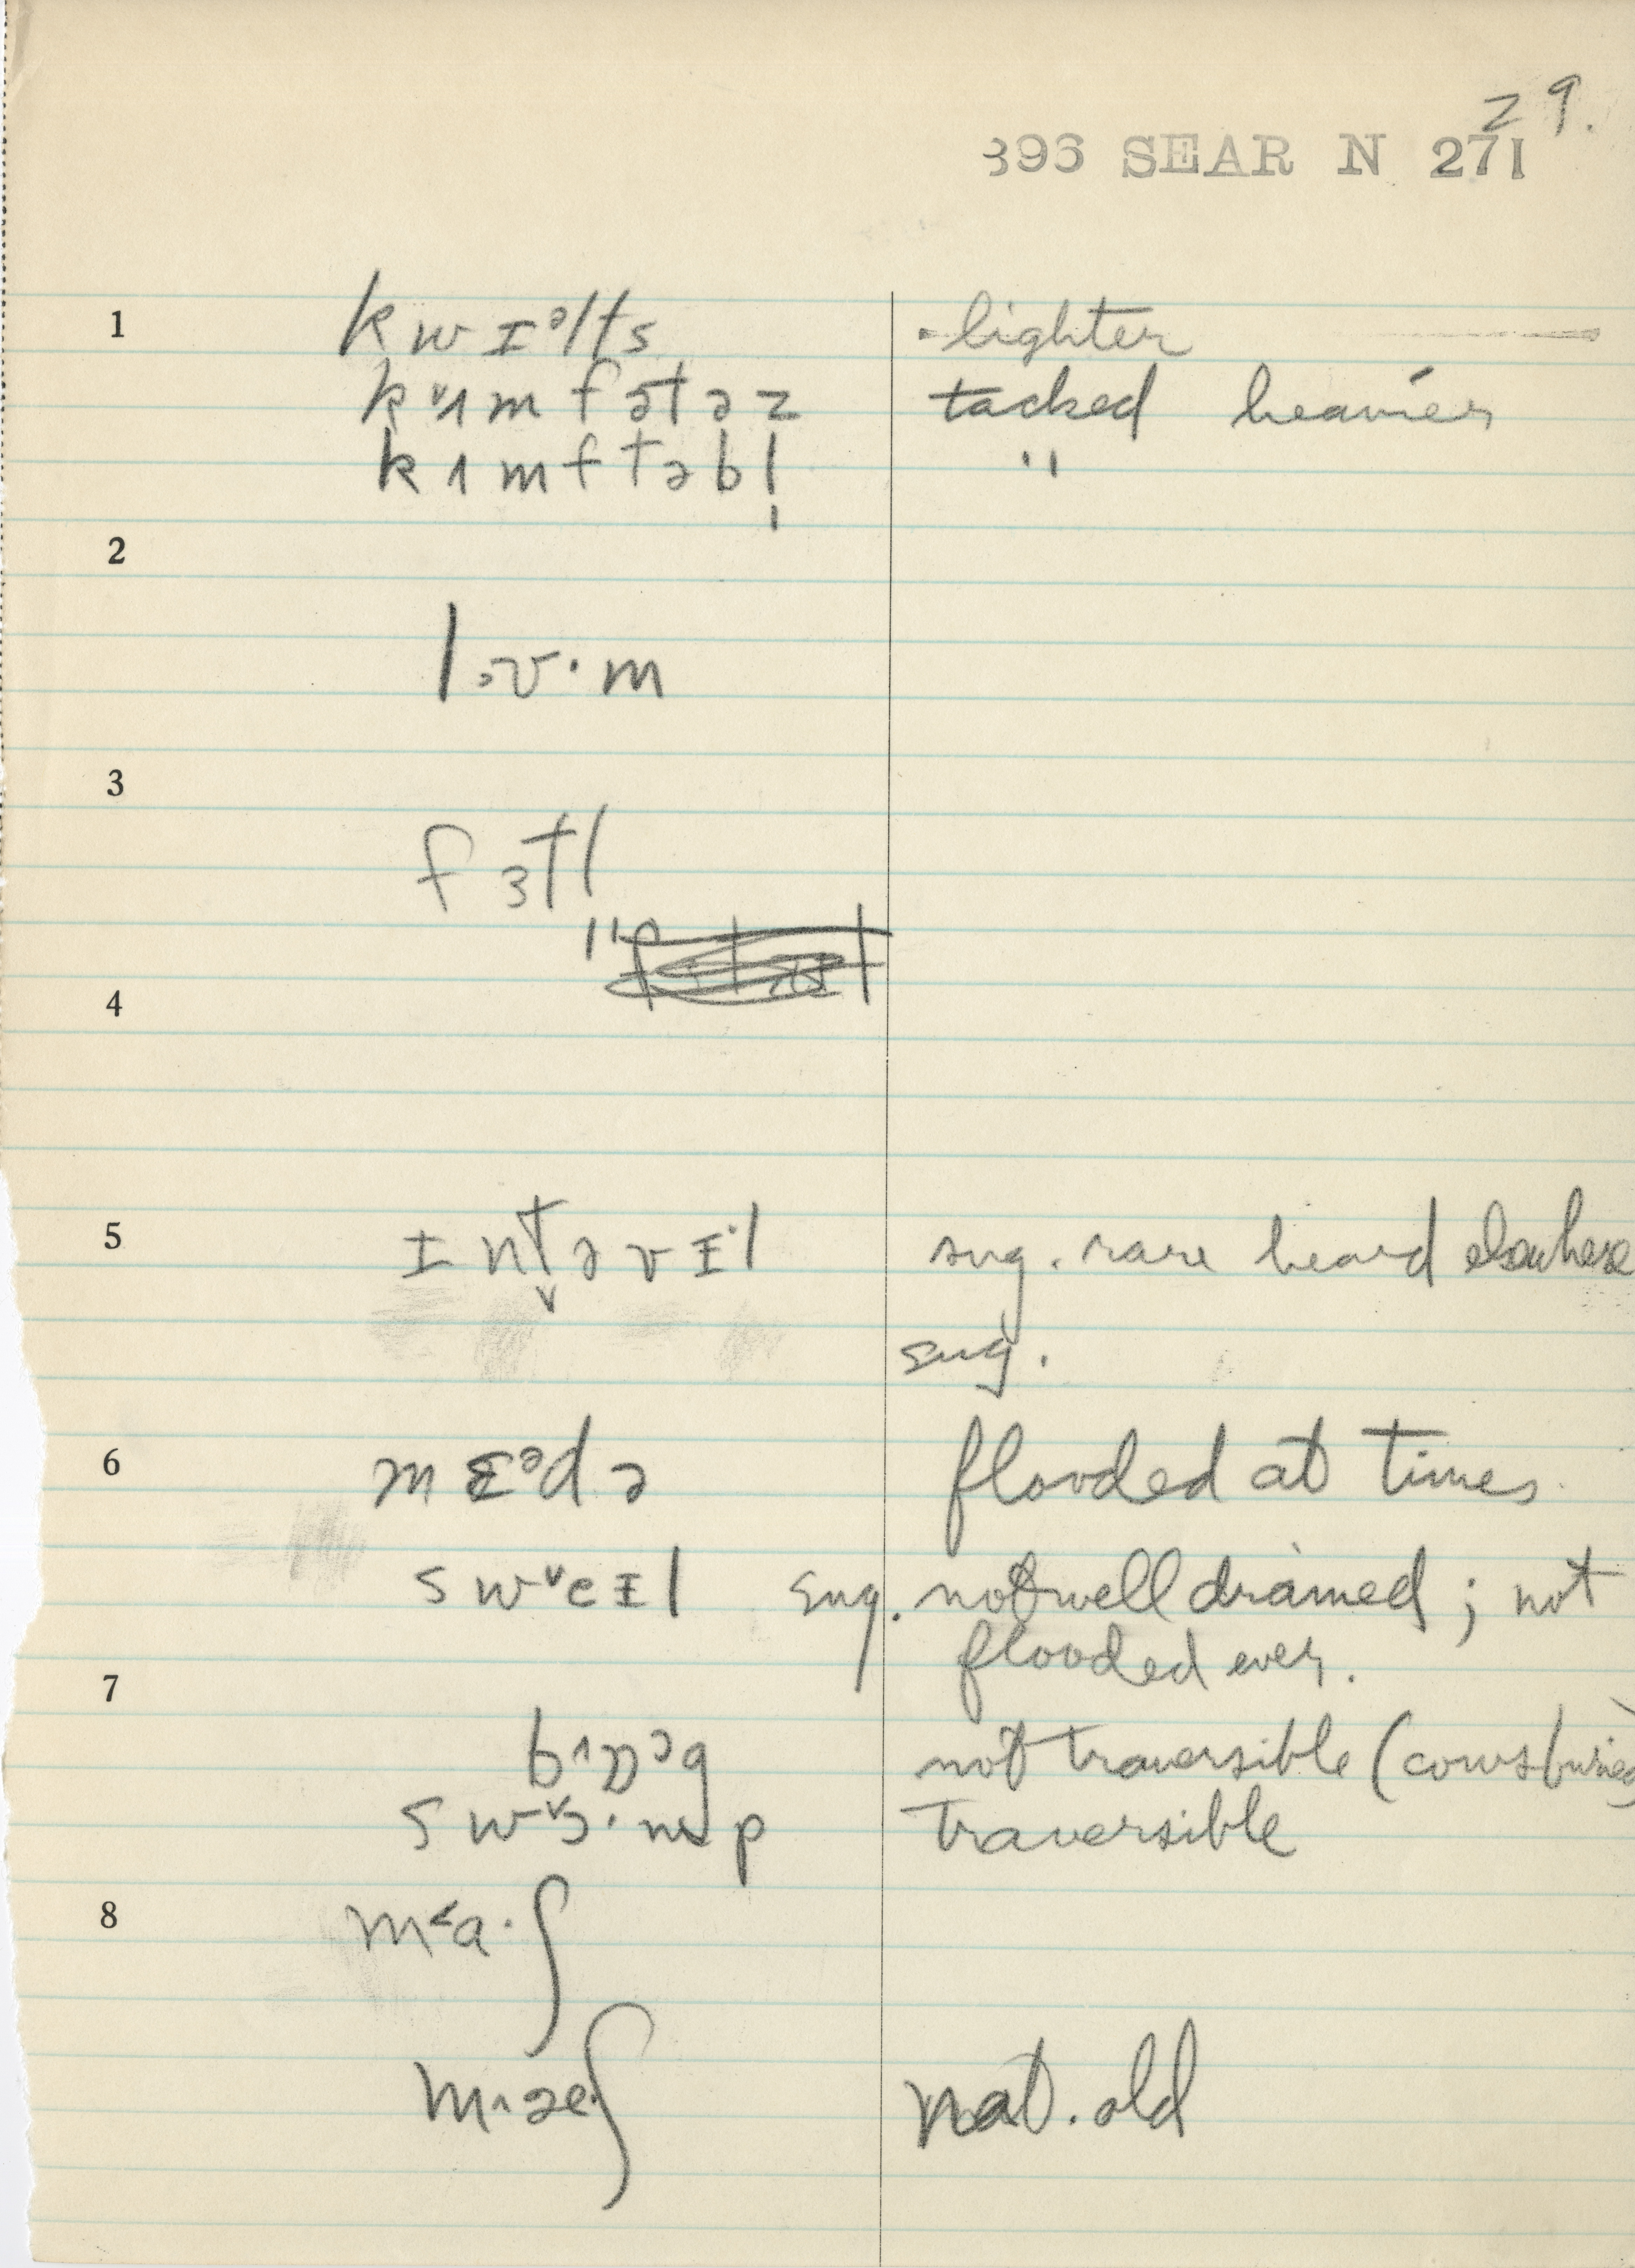 29.
396 SEAR N 271
1 kwɪᵊlts · lighter
kᵛʌmfətəz tacked heavier
kʌmftəbl̩ "
2
lɔʊ·m
3
fɜtl
"
4
5 ɪntəvɪ·l sug. rare heard elsewhere
sug.
6 mɛᵊdə flooded at times.
swᵛeɪl sug. not well drained; not
flooded ever.
7
bʌɒᵓg not traversible (cows buried)
swᵛɔ·mp traversible
8 m˂a·ʃ
m˄æʃ nat. old